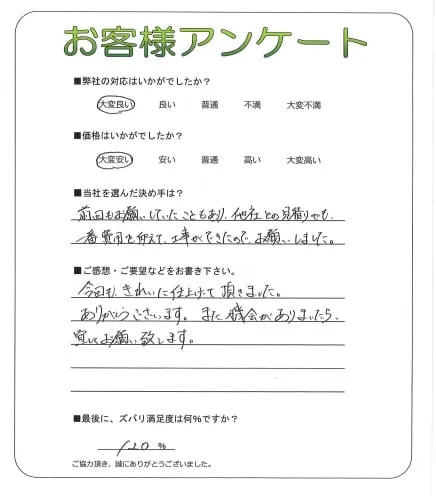 お客様アンケート
■弊社の対応はいかがでしたか？
大変良い 良い 普通 不満 大変不満
■価格はいかがでしたか？
大変安い 安い 普通 高い 大変高い
■当社を選んだ決め手は？
前回もお願いしていたこともあり、他社との見積りでも、
一番費用を抑えて、工事ができたので、お願いしました。
■ご感想・ご要望などをお書き下さい。
今回も、きれいに仕上げて頂きました。
ありがとうございます。また機会がありましたら、
宜しくお願い致します。
■最後に、ズバリ満足度は何%ですか？
120 %
ご協力頂き、誠にありがとうございました。